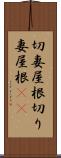 切妻屋根切り
妻屋根《《